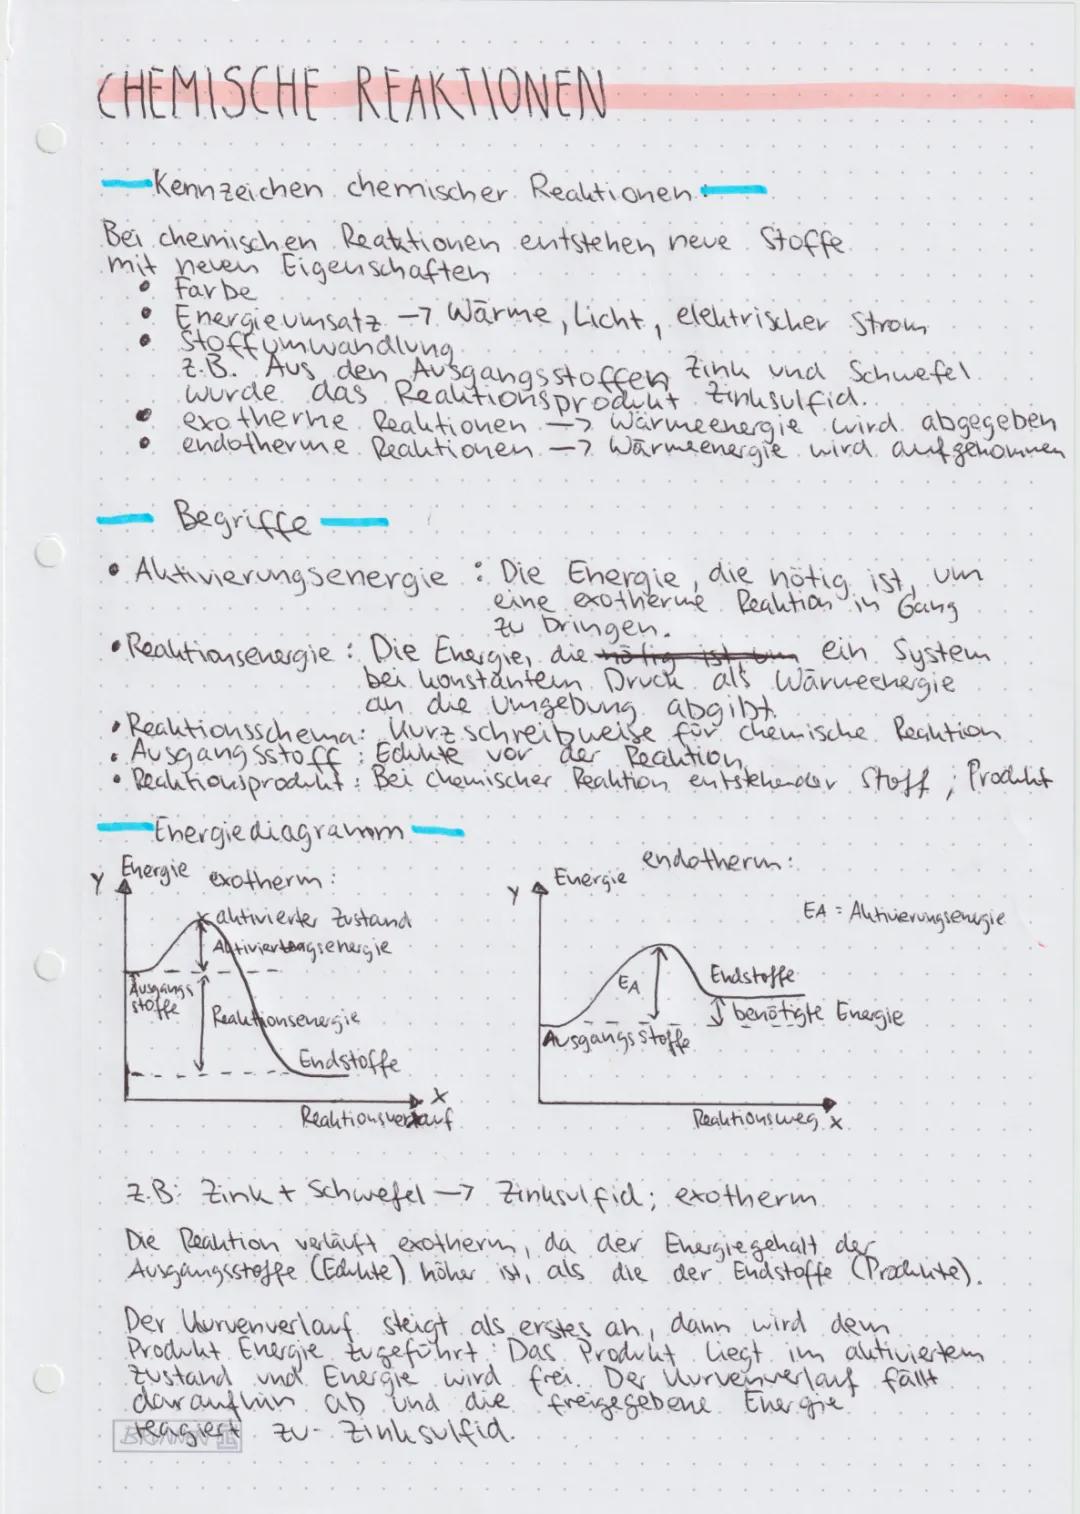 CHEMISCHE REAKTIONEN
Kennzeichen chemischer Reaktionen:
Bei chemischen Reaktionen entstehen neue Stoffe
mit neuen Eigenschaften
• Farbe
• Energieumsatz → Wärme, Licht, elektrischer Strom
• Stoffumwandlung
z.B. Aus den Ausgangsstoffen Zink und Schwefel
wurde das Reaktionsprodukt Zinksulfid.
• exotherme Reaktionen → Wärmeenergie wird abgegeben
• endotherme Reaktionen → Wärmeenergie wird aufgenommen
Begriffe
• Aktivierungsenergie : Die Energie, die nötig ist, um
eine exotherme Reaktion in Gang
zu bringen.
• Reaktionsenergie : Die Energie, die nötig ist, um ein System
bei konstantem Druck als Wärmeenergie
an die Umgebung abgibt.
• Reaktionsschema: Kurzschreibweise für chemische Reaktion
• Ausgangsstoff : Edukte vor der Reaktion
• Reaktionsprodukt : Bei chemischer Reaktion entstehender Stoff ; Produkt
Energiediagramm
Y Energie exotherm :
aktivierter Zustand
Aktivierungsenergie
Ausgangs
stoffe
Reaktionsenergie
Endstoffe
X
Reaktionsverlauf
endotherm :
Y Energie
EA = Aktivierungsenergie
EA
Endstoffe
benötigte Energie
Ausgangsstoffe
Reaktionsweg X
z.B: Zink + Schwefel → Zinksulfid; exotherm
Die Reaktion verläuft exotherm, da der Energiegehalt der
Ausgangsstoffe (Edukte) höher ist, als die der Endstoffe (Produkte).
Der Kurvenverlauf steigt als erstes an, dann wird dem
Produkt Energie zugeführt. Das Produkt liegt im aktiviertem
Zustand und Energie wird frei. Der Kurvenverlauf fällt
daraufhin ab und die freigegebene Energie
reagiert zu Zinksulfid.
BRUNNEN